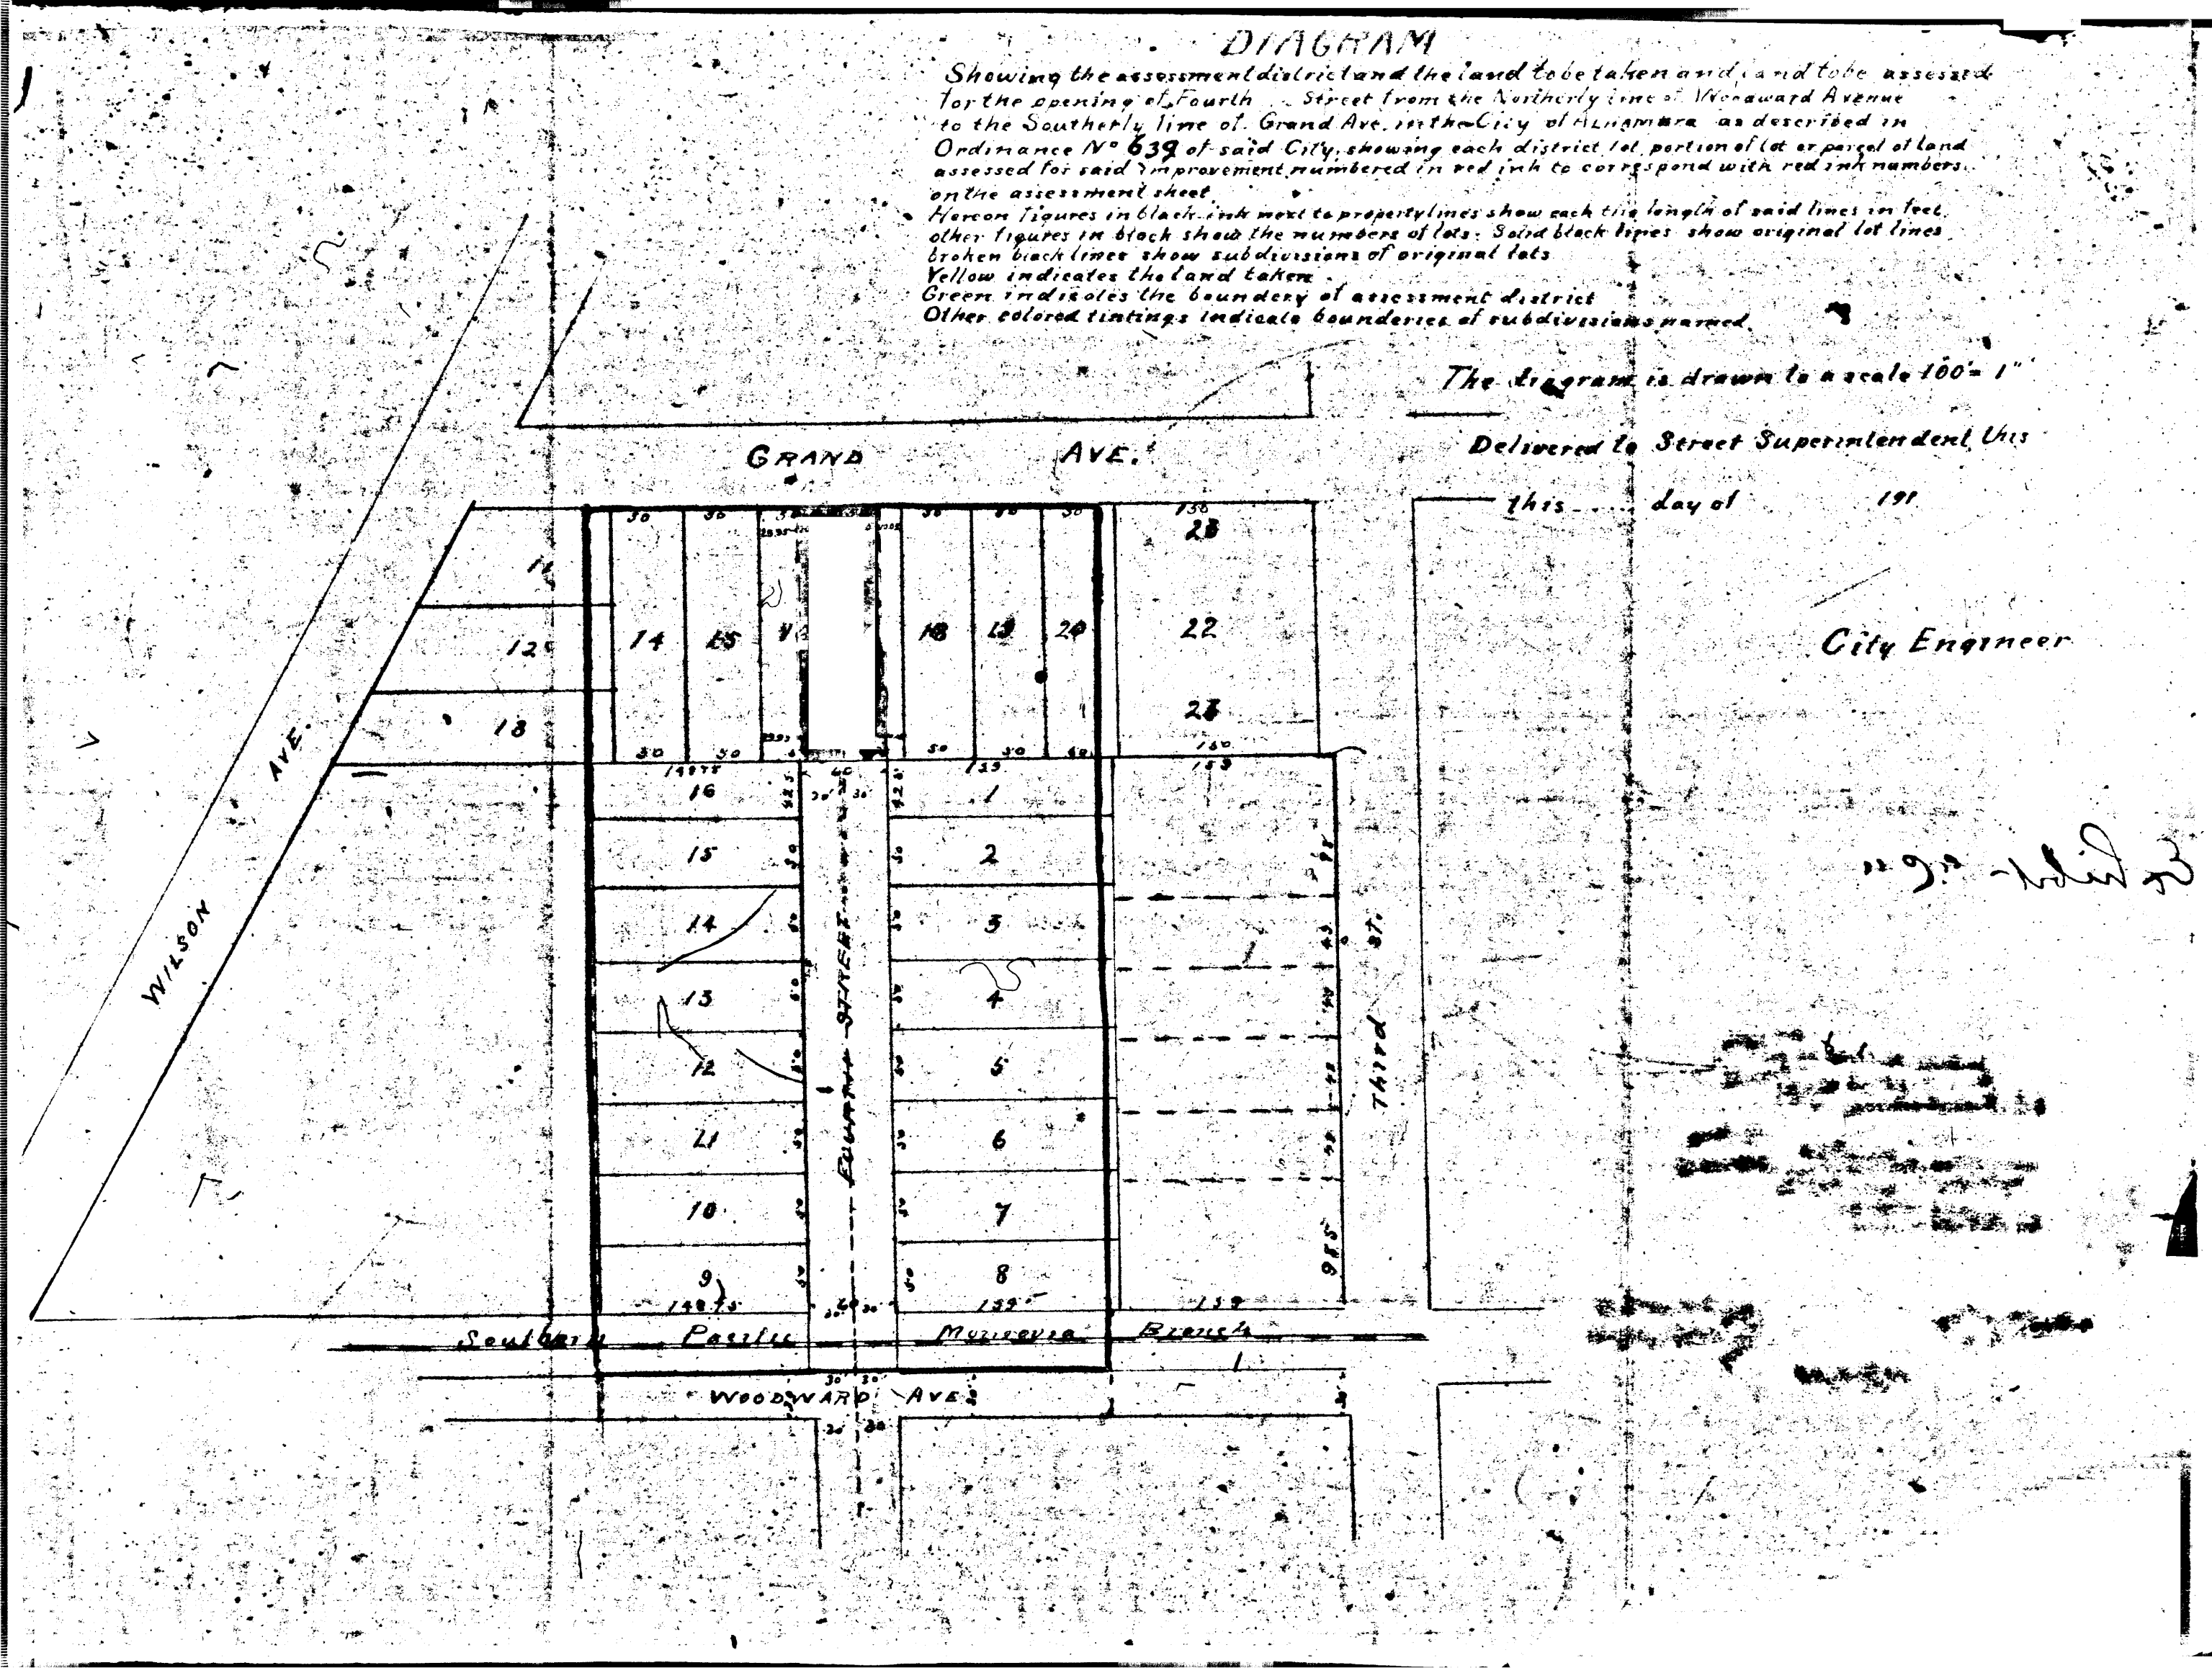 DIAGRAM
Showing the assessment district and the land to be taken and land to be assessed
for the opening of Fourth Street from the Northerly line of Woodward Avenue
to the Southerly line of Grand Ave. in the City of Alhambra as described in
Ordinance No 639 of said City, showing each district lot, portion of lot or parcel of land
assessed for said improvement numbered in red ink to correspond with red ink numbers
on the assessment sheet.
Hereon figures in black ink next to property lines show each the length of said lines in feet,
other figures in black show the numbers of lots. Solid black lines show original lot lines
broken black lines show subdivisions of original lots
Yellow indicates the land taken
Green indicates the boundery of assessment district
Other colored tintings indicate bounderies of subdivisions named.
The diagram is drawn to a scale 100'= 1"
Delivered to Street Superintendent this
this day of 191
City Engineer
GRAND AVE.
50 50 50 50 50 50 150
11
12
13
14 15 18 19 20 22
50 50 50 50 150
148 75 60 159 159
16 30 30 1
15 50 50 2
14 50 50 3
13 50 50 4
12 50 50 5
11 50 50 6
10 50 50 7
9 50 50 8
148 75 60 30 159 159
FOURTH STREET
Third ST.
985
WILSON AVE.
Southern Pacific Monrovia Branch
1
30 30
WOODWARD AVE
30 30
Exhibit